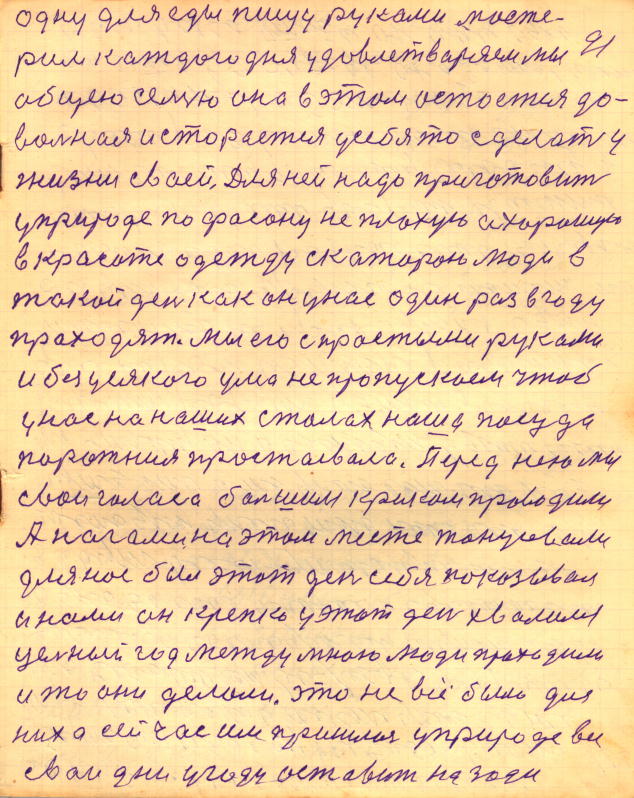 одну для еды пищу руками масте-
рим каждого дня удовлетваряем мы 91
общею семю она в этом остоется до-
волная и старается у себя то сделать у
жизни своей. Для ней надо приготовит
у природе по фасону не плохую а хорошую
в красоте одежду с каторою люди в
такой ден как он у нас один раз в году
праходят. Мы его с простыми руками
и без усякого ума не пропускаем чтоб
у нас на наших столах наша посуда
порожния простаевала. Перед нею мы
свои голаса большим криком проводили
А нагами, на этом месте танцували
для нас был этот ден себя показывал
а нами он крепко у этот ден хвалился
целный год между мною люди праходили
и то они делали. Это не всё было для
них а сей час им пришлося у природе все
свои дни у году оставит назади